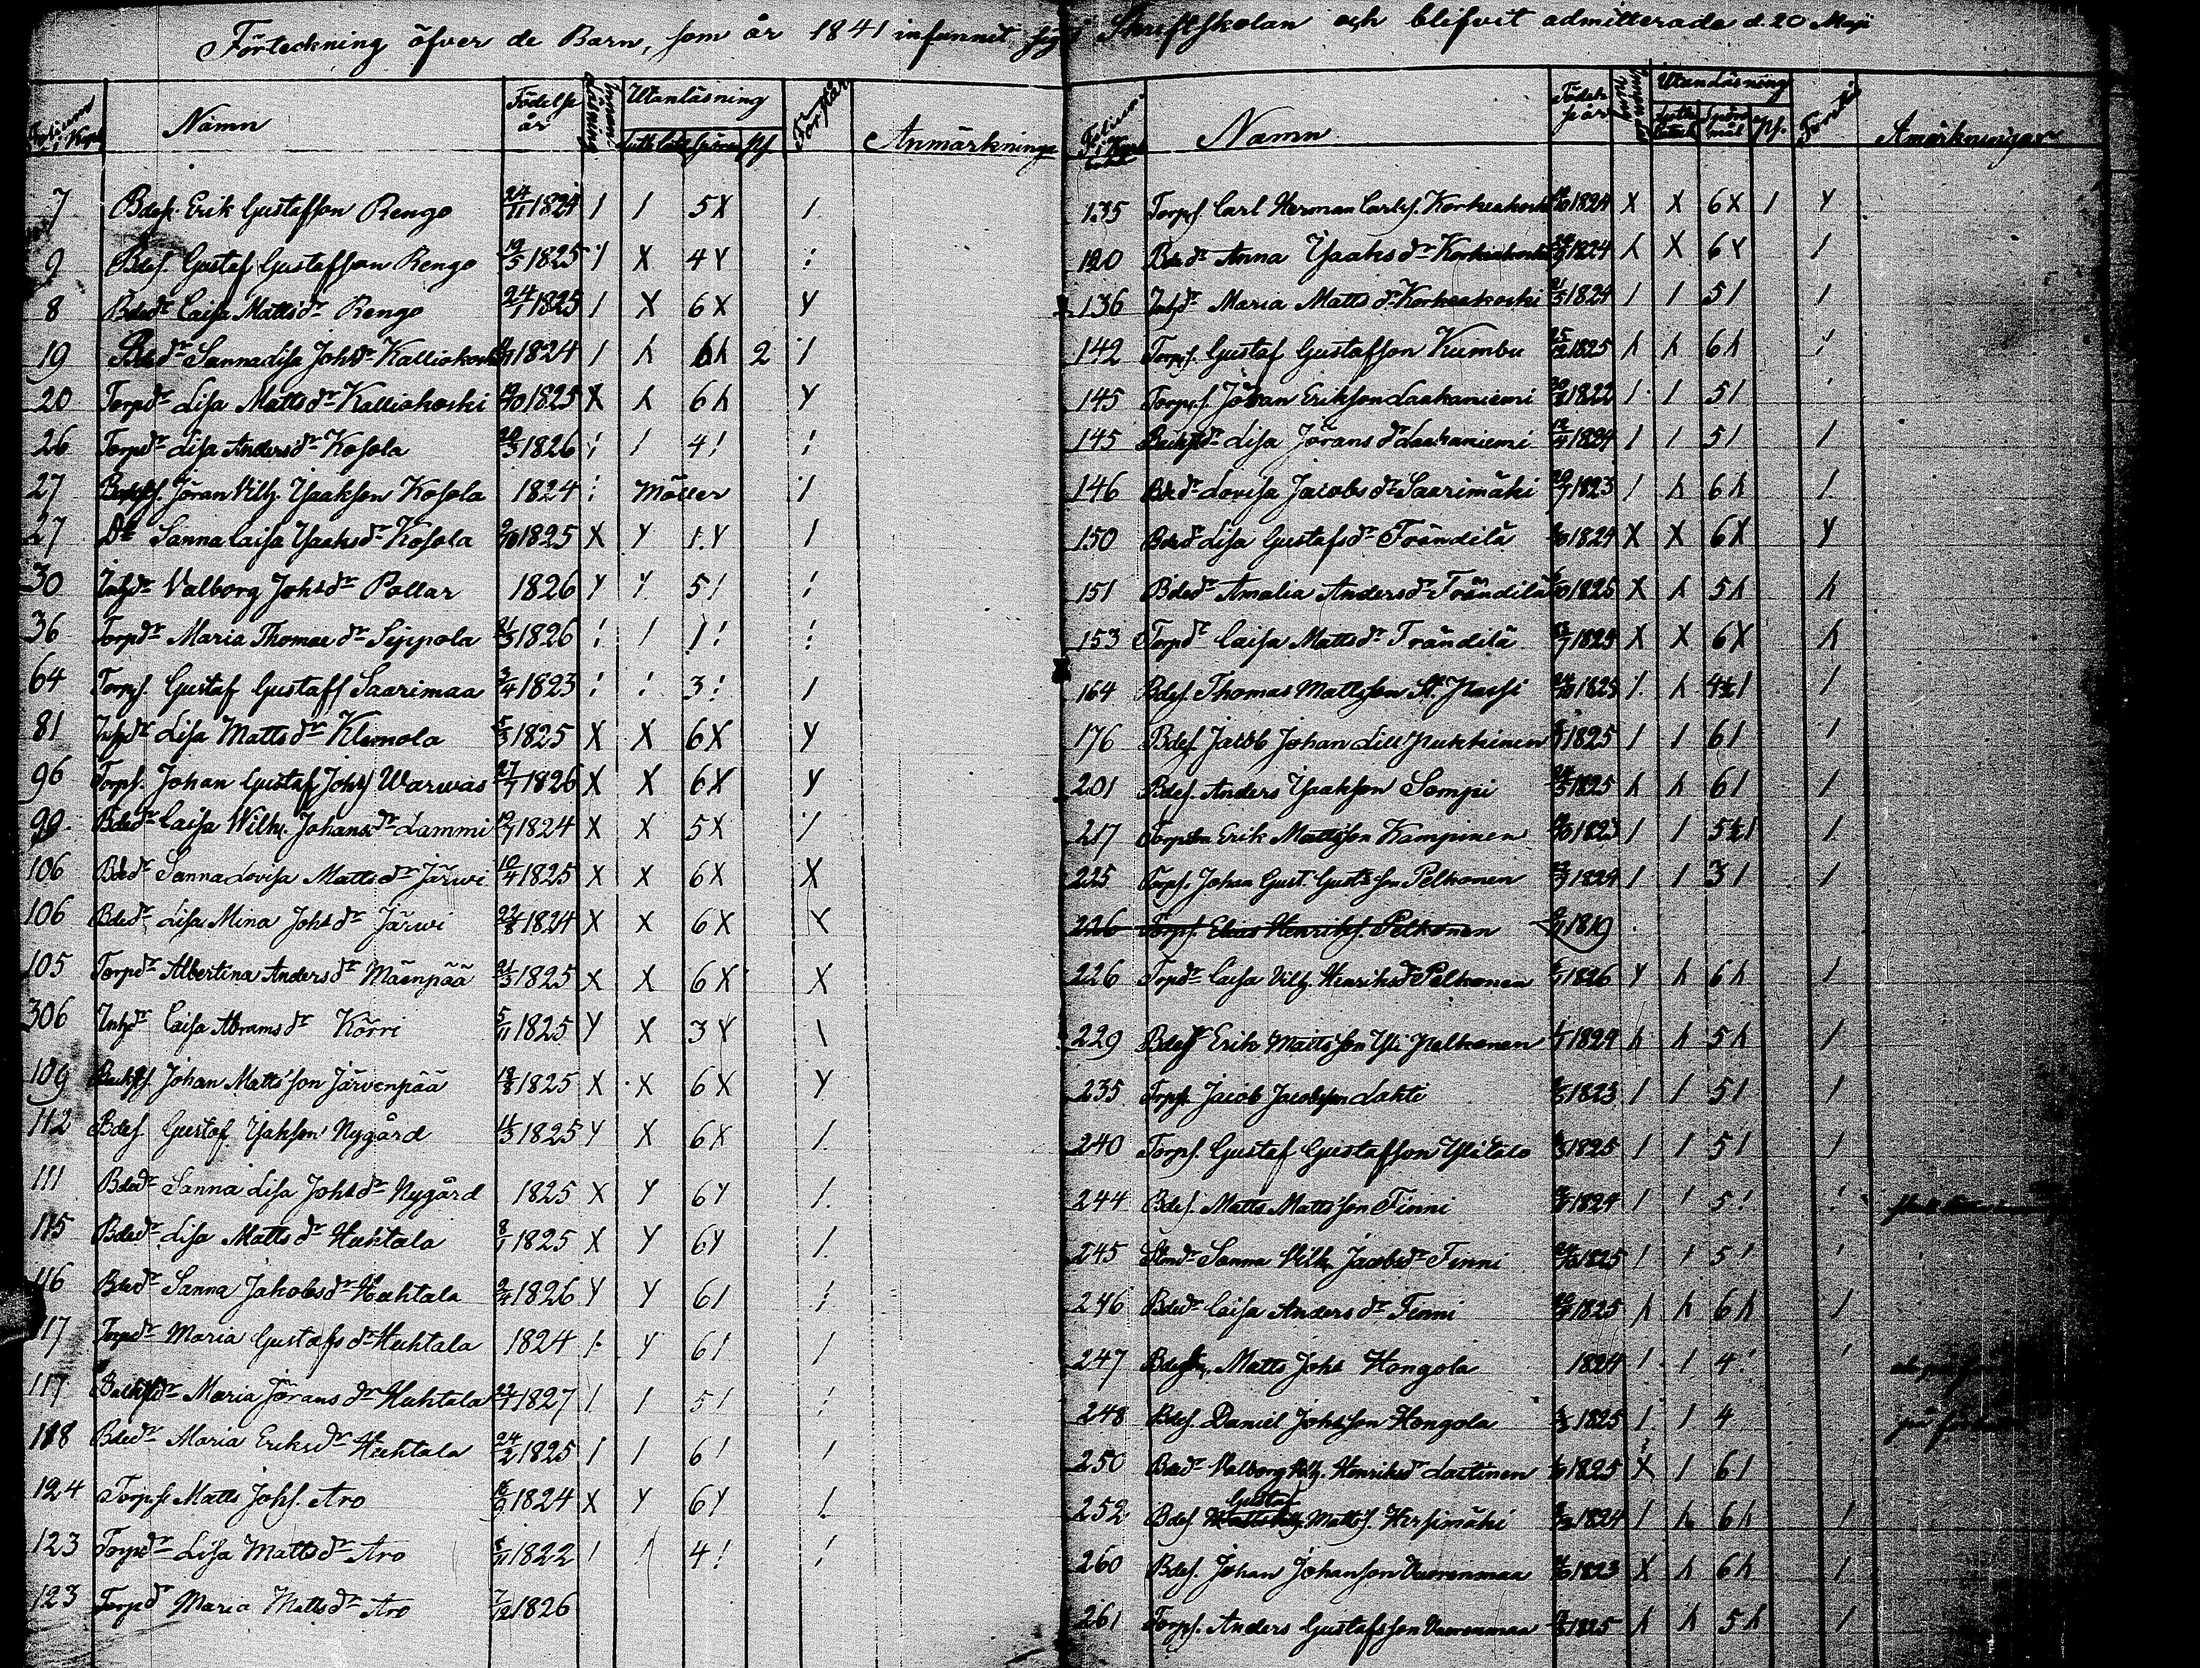 Förteckning öfver de Barn, som år 1841 infunnit sig i Skriftskolan och blifvit admitterade d. 20 Maji
Folium i Kyrk Namn Födelse år Innan läsning Utanläsning Förstår Anmärkninga
Luth Cat Spörs ps.
7 Bdes. Erik Gustafsson Rengo 24/11 1824 / / 5X /
9 Bdes. Gustaf Gustafsson Rengo 19/5 1825 Y X 4Y /
8 Bdedr Caisa Mattsdr Rengo 24/1 1825 / X 6X Y
19 Bdedr Sanna Lisa Johsdr Kalliokoski 1824 / λ 6λ 2 /
20 Torpdr Lisa Mattsdr Kalliokoski 1825 X λ 6λ Y
26 Torpdr Lisa Andersdr Kosola 1826 / / 4/ /
27 Jöran Vilh. Ysaksson Kosola 1824 / Möller /
27 Dr Sanna Caisa Ysaksdr Kosola 1825 X Y 1.Y /
30 Inhdr Valborg Johsdr Pollar 1826 Y Y 5/ /
36 Torpdr Maria Thomaedr Seppola 21/5 1826 / / 1/ /
64 Torps. Gustaf Gustafs Saarimaa 2/4 1823 / / 3/ /
81 Inhdr Lisa Mattsdr Klemola 5/3 1825 X X 6X Y
96 Torps. Johan Gustaf Johs Warwas 27/7 1826 X X 6X Y
99. Bdedr Caisa Wilh. Johansdr Lammi 1824 X X 5X /
106 Bdedr Sanna Lovisa Mattsdr Järwi 10/4 1825 X X 6X X
106 Bdedr Lisa Mina Johsdr Järwi 22/8 1824 X X 6X X
105 Torpdr Albertina Andersdr Mäenpää 21/3 1825 X X 6X X
306 Inhdr Caisa Abramsdr Körri 5/11 1825 Y X 3Y \
109 Backss. Johan Mattsson Järvenpää 1825 X X 6X Y
112 Bdes. Gustaf Ysaksson Nygård 1825 Y X 6X /
111 Bdedr Sanna Lisa Johsdr Nygård 1825 X Y 6Y /
115 Bdedr Lisa Mattsdr Huhtala 8/1 1825 X Y 6Y /
116 Bdedr Sanna Jakobsdr Huhtala 2/4 1826 Y Y 6/ /
117 Torpdr Maria Gustafsdr Huhtala 1824 / Y 6/ /
117 Backstdr Maria Jöransdr Huhtala 1827 / / 5/ /
118 Bdedr Maria Eriksdr Huhtala 24/2 1825 / / 6/ /
124 Torps. Matts Johs. Aro 1824 X Y 6Y /
123 Torpdr Lisa Mattsdr Aro 1822 / / 4/ /
123 Torpdr Maria Mattsdr Aro 7/12 1826
Folium i Kyrk boken Namn Födelse år Utanläsning Förstår Amärkningar
Luth Catech Spörs mål ps.
135 Torps. Carl Herman Carls. Korkeakoski 1824 X X 6X / Y
120 Bdedr Anna Ysaksdr Korkeakoski 1824 λ X 6Y /
136 Inhdr Maria Mattsdr Korkeakoski 21/5 1824 / / 5/ /
142 Torps. Gustaf Gustafsson Kumbu 25/12 1825 λ λ 6λ /
145 Torps. Jöran Eriksson Laakaniemi 1822 / / 5/
145 Backstdr Lisa Jöransdr Laakaniemi 12/4 1824 / / 5/ /
146 Bdedr Lovisa Jacobsdr Saarimäki 1823 / λ 6λ /
150 Bdedr Lisa Gustafsdr Frändilä 1824 X X 6X Y
151 Bdedr Amalia Andersdr Frändilä 1825 X λ 5λ λ
153 Torpdr Caisa Mattsdr Frändilä 1824 X X 6X λ
164 Bdes. Thomas Mattsson St. Passi 1825 / λ 4½/ /
176 Bdes. Jacob Johan Lill Pukkinen 1825 / / 6/ /
201 Bdes. Anders Ysaksson Sompi 1825 λ λ 6/ /
217 Torp Erik Mattsson Kampinen 1823 / / 5½/ /
225 Torps. Johan Gust. Gustsson Pelkonen 1824 / / 3/ /
226 Torps. Elias Henrikss. Pelkonen 1819
226 Torpdr Caisa Vilh. Henriksdr Pelkonen 1826 Y λ 6λ /
229 Bdes. Erik Mattsson Yli Pelkonen 1824 λ λ 5λ /
235 Torps. Jacob Jacobsson Lahti 1823 / / 5/ /
240 Torps. Gustaf Gustafsson Ylitalo 1825 / / 5/ /
244 Bdes. Matts Mattsson Finni 1824 / / 5/ /
245 Sanna Vilh. Jacobsdr Finni 1825 / / 5/ /
246 Bdedr Caisa Andersdr Finni 1825 λ λ 6λ /
247 Matts Johs Hongola 1824 / / 4/ /
248 Bdes. Daniel Johsson Hongola 1825 / / 4 på
250 Bdedr Valborg Vilh. Henriksdr Lastinen 1825 X / 6/
252 Bdes. Gustaf Mattss. Hirsimäki 1824 / λ 6λ /
260 Bdes. Johan Johansson Vuorenmaa 1823 X λ 6λ /
261 Torps. Anders Gustafsson Vuorenmaa 1825 λ λ 5λ /